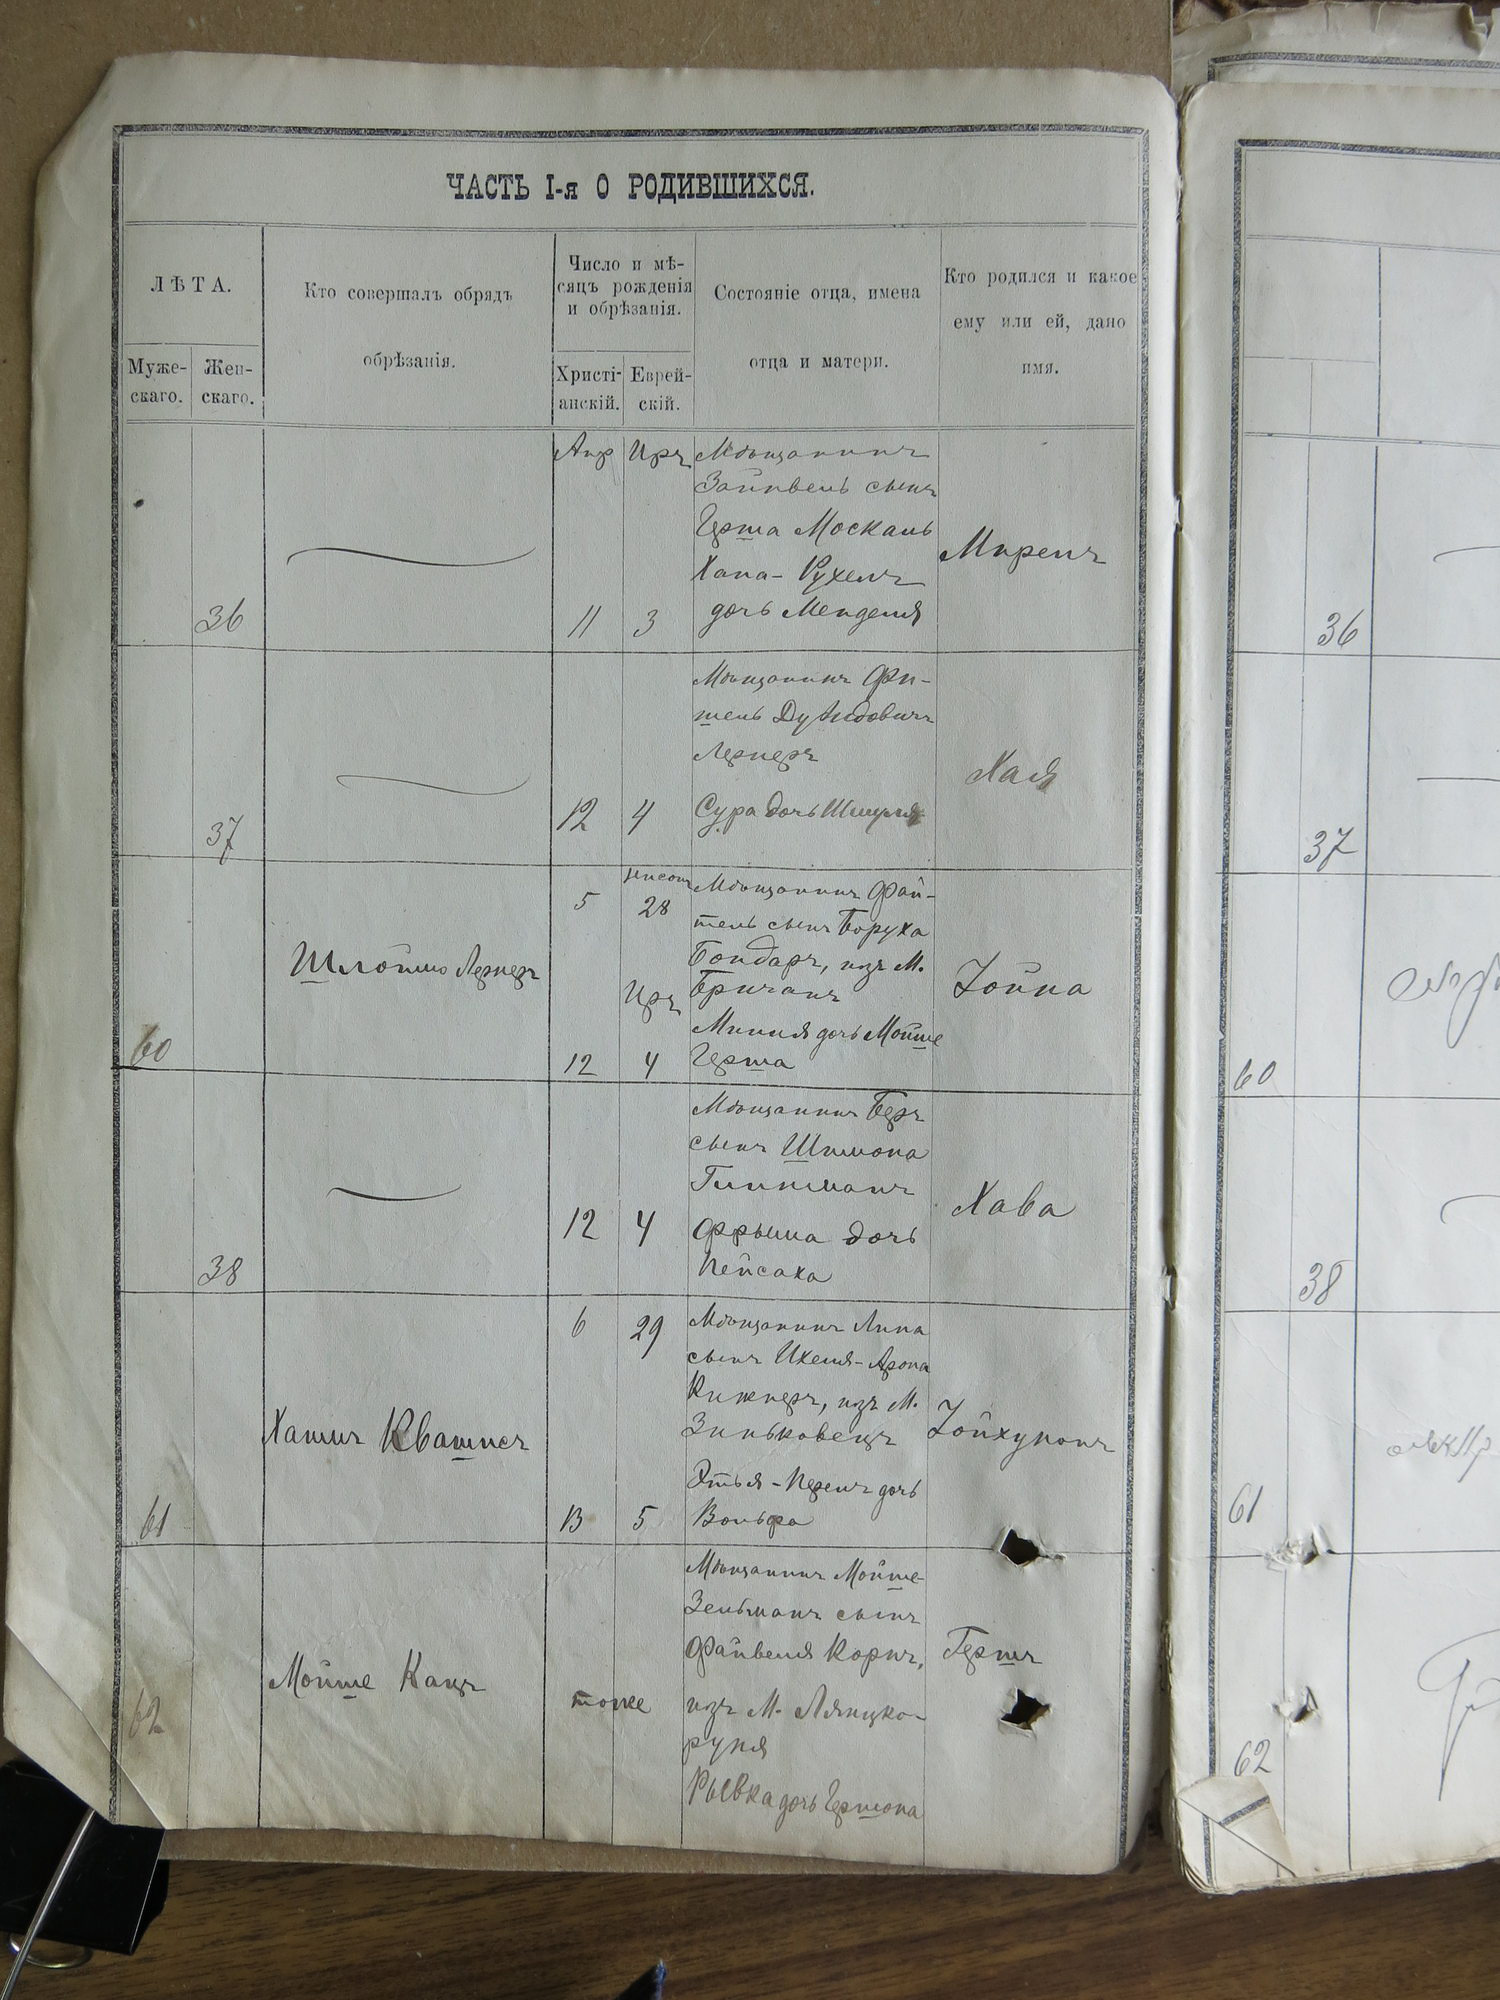 ЧАСТЬ I-я О РОДИВШИХСЯ.
ЛѢТА.
Муже-
скаго.
Жен-
скаго.
Кто совершалъ обрядъ
обрѣзанія.
Число и мѣ-
сяцъ рожденія
и обрѣзанія.
Христі-
анскій.
Еврей-
скій.
Состояніе отца, имена
отца и матери.
Кто родился и какое
ему или ей, дано
имя.
36
Апр
11
Иръ
3
Мѣщанинъ
Зайнвель сынъ
Герша Москаль
Хана-Рухель
дочь Менделя
Миремъ
37
12
4
Мѣщанинъ Фи-
шель Дувидовичъ
Лернеръ
Сура дочь Шмуля
Хая
60
Шлоймо Лернеръ
5
Нисонъ
28
Иръ
12
4
Мѣщанинъ Фай-
тель сынъ Боруха
Бондаръ, изъ м.
Бричанъ
Минця дочь Мойше
Герша
Іойна
38
12
4
Мѣщанинъ Беръ
сынъ Шимона
Глитманъ
Фрыма дочь
Пейсаха
Хава
61
Хаимъ Квашисъ
6
29
13
5
Мѣщанинъ Липа
сынъ Ихеля-Арона
Кижнеръ, изъ м.
Зиньковецъ
Этья-Перель дочь
Вольфа
Іойхунонъ
62
Мойше Кацъ
тоже
Мѣщанинъ Мойше-
Зельманъ сынъ
Файвеля Коричъ,
изъ м. Лянцко-
руня
Рывка дочь Гершона
Гершъ
36
37
60
38
61
62